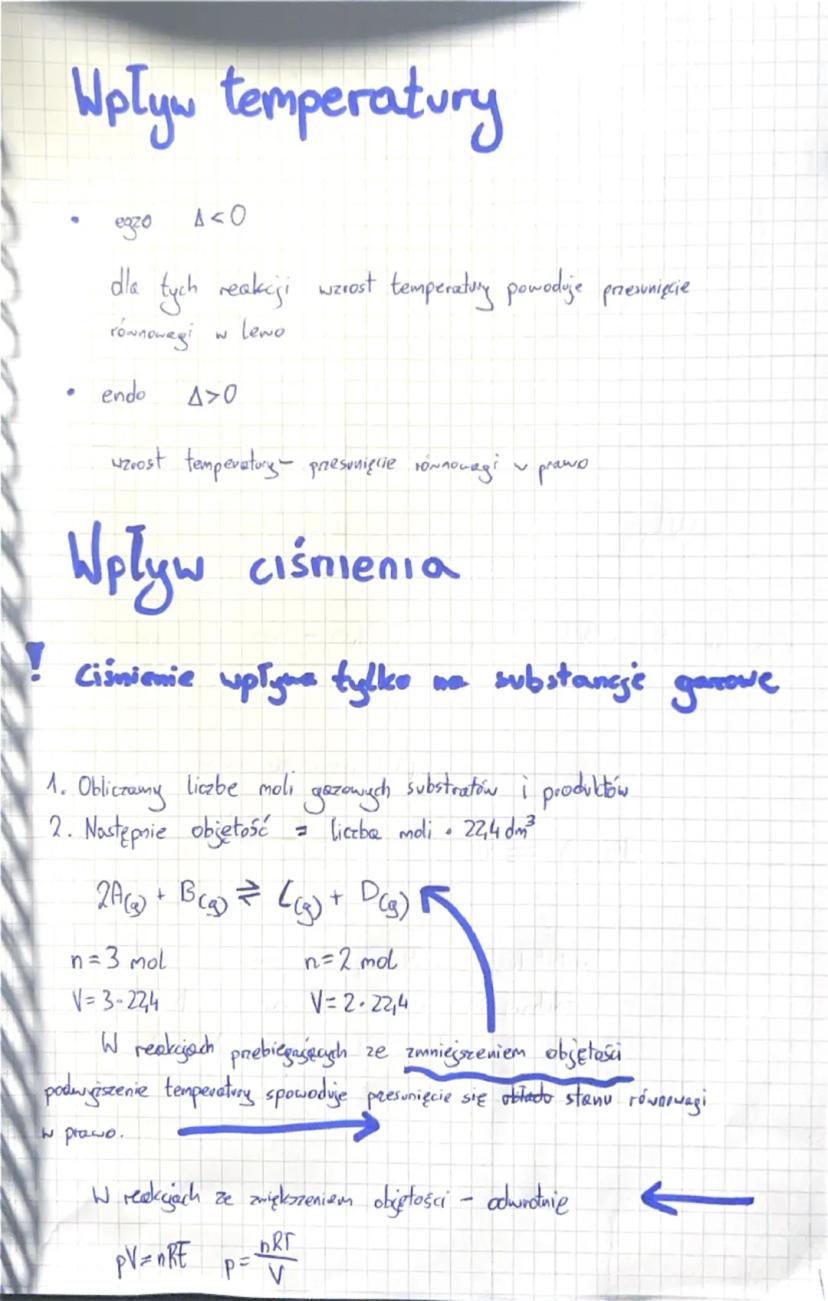 Wpływ temperatury
• egzo Δ<0
dla tych reakcji wzrost temperatury powoduje przesunięcie
równowagi w lewo
• endo Δ>0
wzrost temperatury- przesunięcie równowagi w prawo
Wpływ ciśnienia
! Ciśnienie wpływa tylko na substancje gazowe
1. Obliczamy liczbe moli gazowych substratów i produktów
2. Następnie objętość = liczba moli · 22,4 dm³
2A(g) + B(g) ⇄ C(g) + D(g)
n=3 mol n=2 mol
V=3·22,4 V=2·22,4
W reakcjach przebiegających ze zmniejszeniem objętości
podwyższenie temperatury spowoduje przesunięcie się układu stanu równowagi
w prawo.
W reakcjach ze zwiększeniem objętości - odwrotnie
pV=nRT p=nRT/V